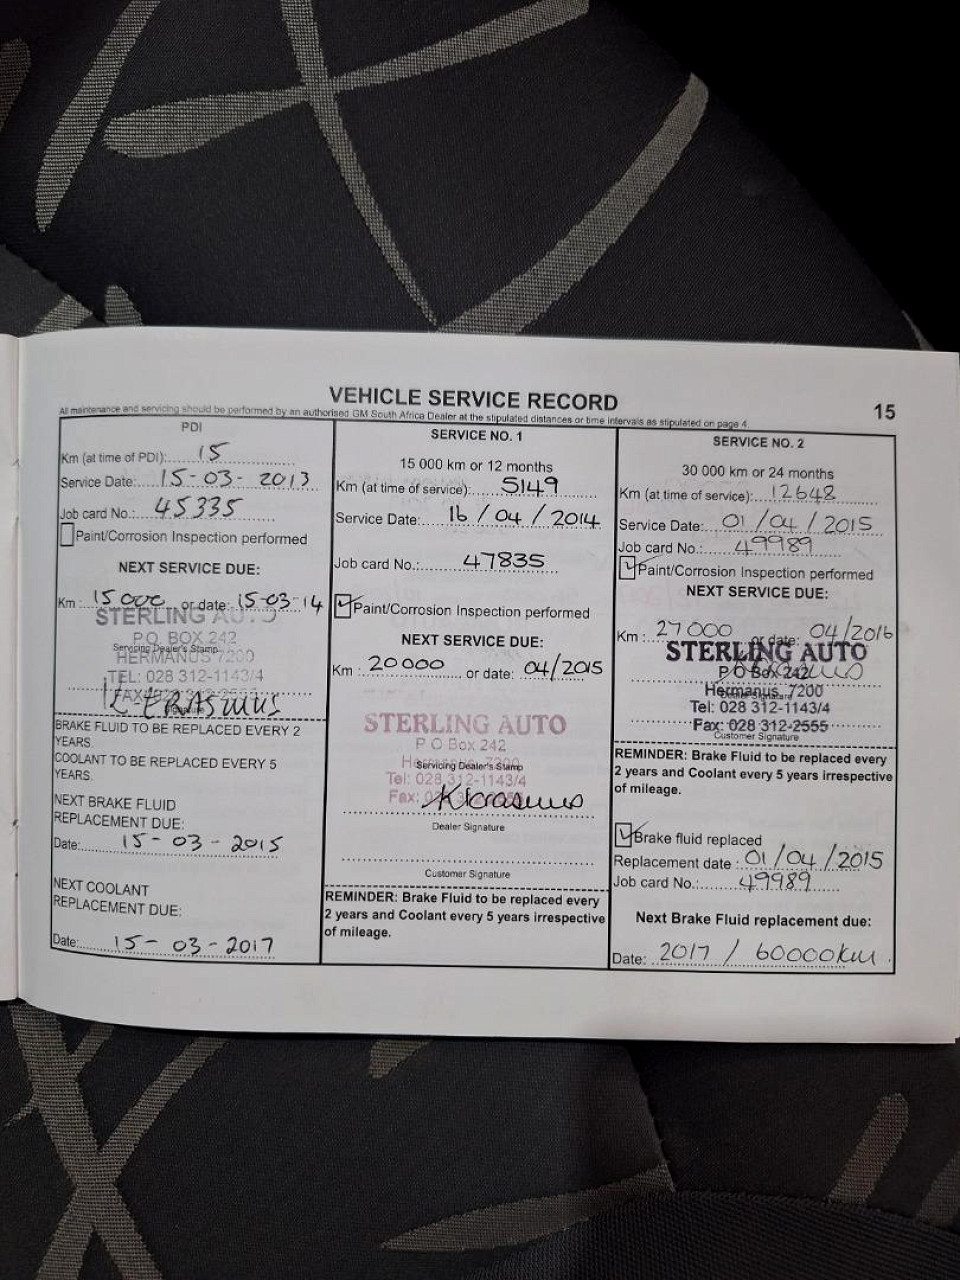 VEHICLE SERVICE RECORD
15
All maintenance and servicing should be performed by an authorised GM South Africa Dealer at the stipulated distances or time intervals as stipulated on page 4.
PDI
Km (at time of PDI): 15
Service Date: 15-03-2013
Job card No.: 45335
Paint/Corrosion Inspection performed
NEXT SERVICE DUE:
Km : 15 000 or date: 15-03-14
STERLING AUTO
P.O. BOX 242
Servicing Dealer's Stamp
HERMANUS 7200
TEL: 028 312-1143/4
ERASMUS
Signature
BRAKE FLUID TO BE REPLACED EVERY 2
YEARS.
COOLANT TO BE REPLACED EVERY 5
YEARS.
NEXT BRAKE FLUID
REPLACEMENT DUE:
Date: 15-03-2015
NEXT COOLANT
REPLACEMENT DUE:
Date: 15-03-2017
SERVICE NO. 1
15 000 km or 12 months
Km (at time of service): 5149
Service Date: 16/04/2014
Job card No.: 47835
Paint/Corrosion Inspection performed
NEXT SERVICE DUE:
Km : 20000 or date: 04/2015
STERLING AUTO
P O Box 242
Servicing Dealer's Stamp
Tel: 028 312-1143/4
Fax:
Dealer Signature
Customer Signature
REMINDER: Brake Fluid to be replaced every
2 years and Coolant every 5 years irrespective
of mileage.
SERVICE NO. 2
30 000 km or 24 months
Km (at time of service): 12648
Service Date: 01/04/2015
Job card No.: 49989
Paint/Corrosion Inspection performed
NEXT SERVICE DUE:
Km : 27000 or date: 04/2016
STERLING AUTO
P O Box 242
Hermanus, 7200
Tel: 028 312-1143/4
Fax: 028 312-2555
Customer Signature
REMINDER: Brake Fluid to be replaced every
2 years and Coolant every 5 years irrespective
of mileage.
Brake fluid replaced
Replacement date : 01/04/2015
Job card No.: 49989
Next Brake Fluid replacement due:
Date: 2017 / 60000km